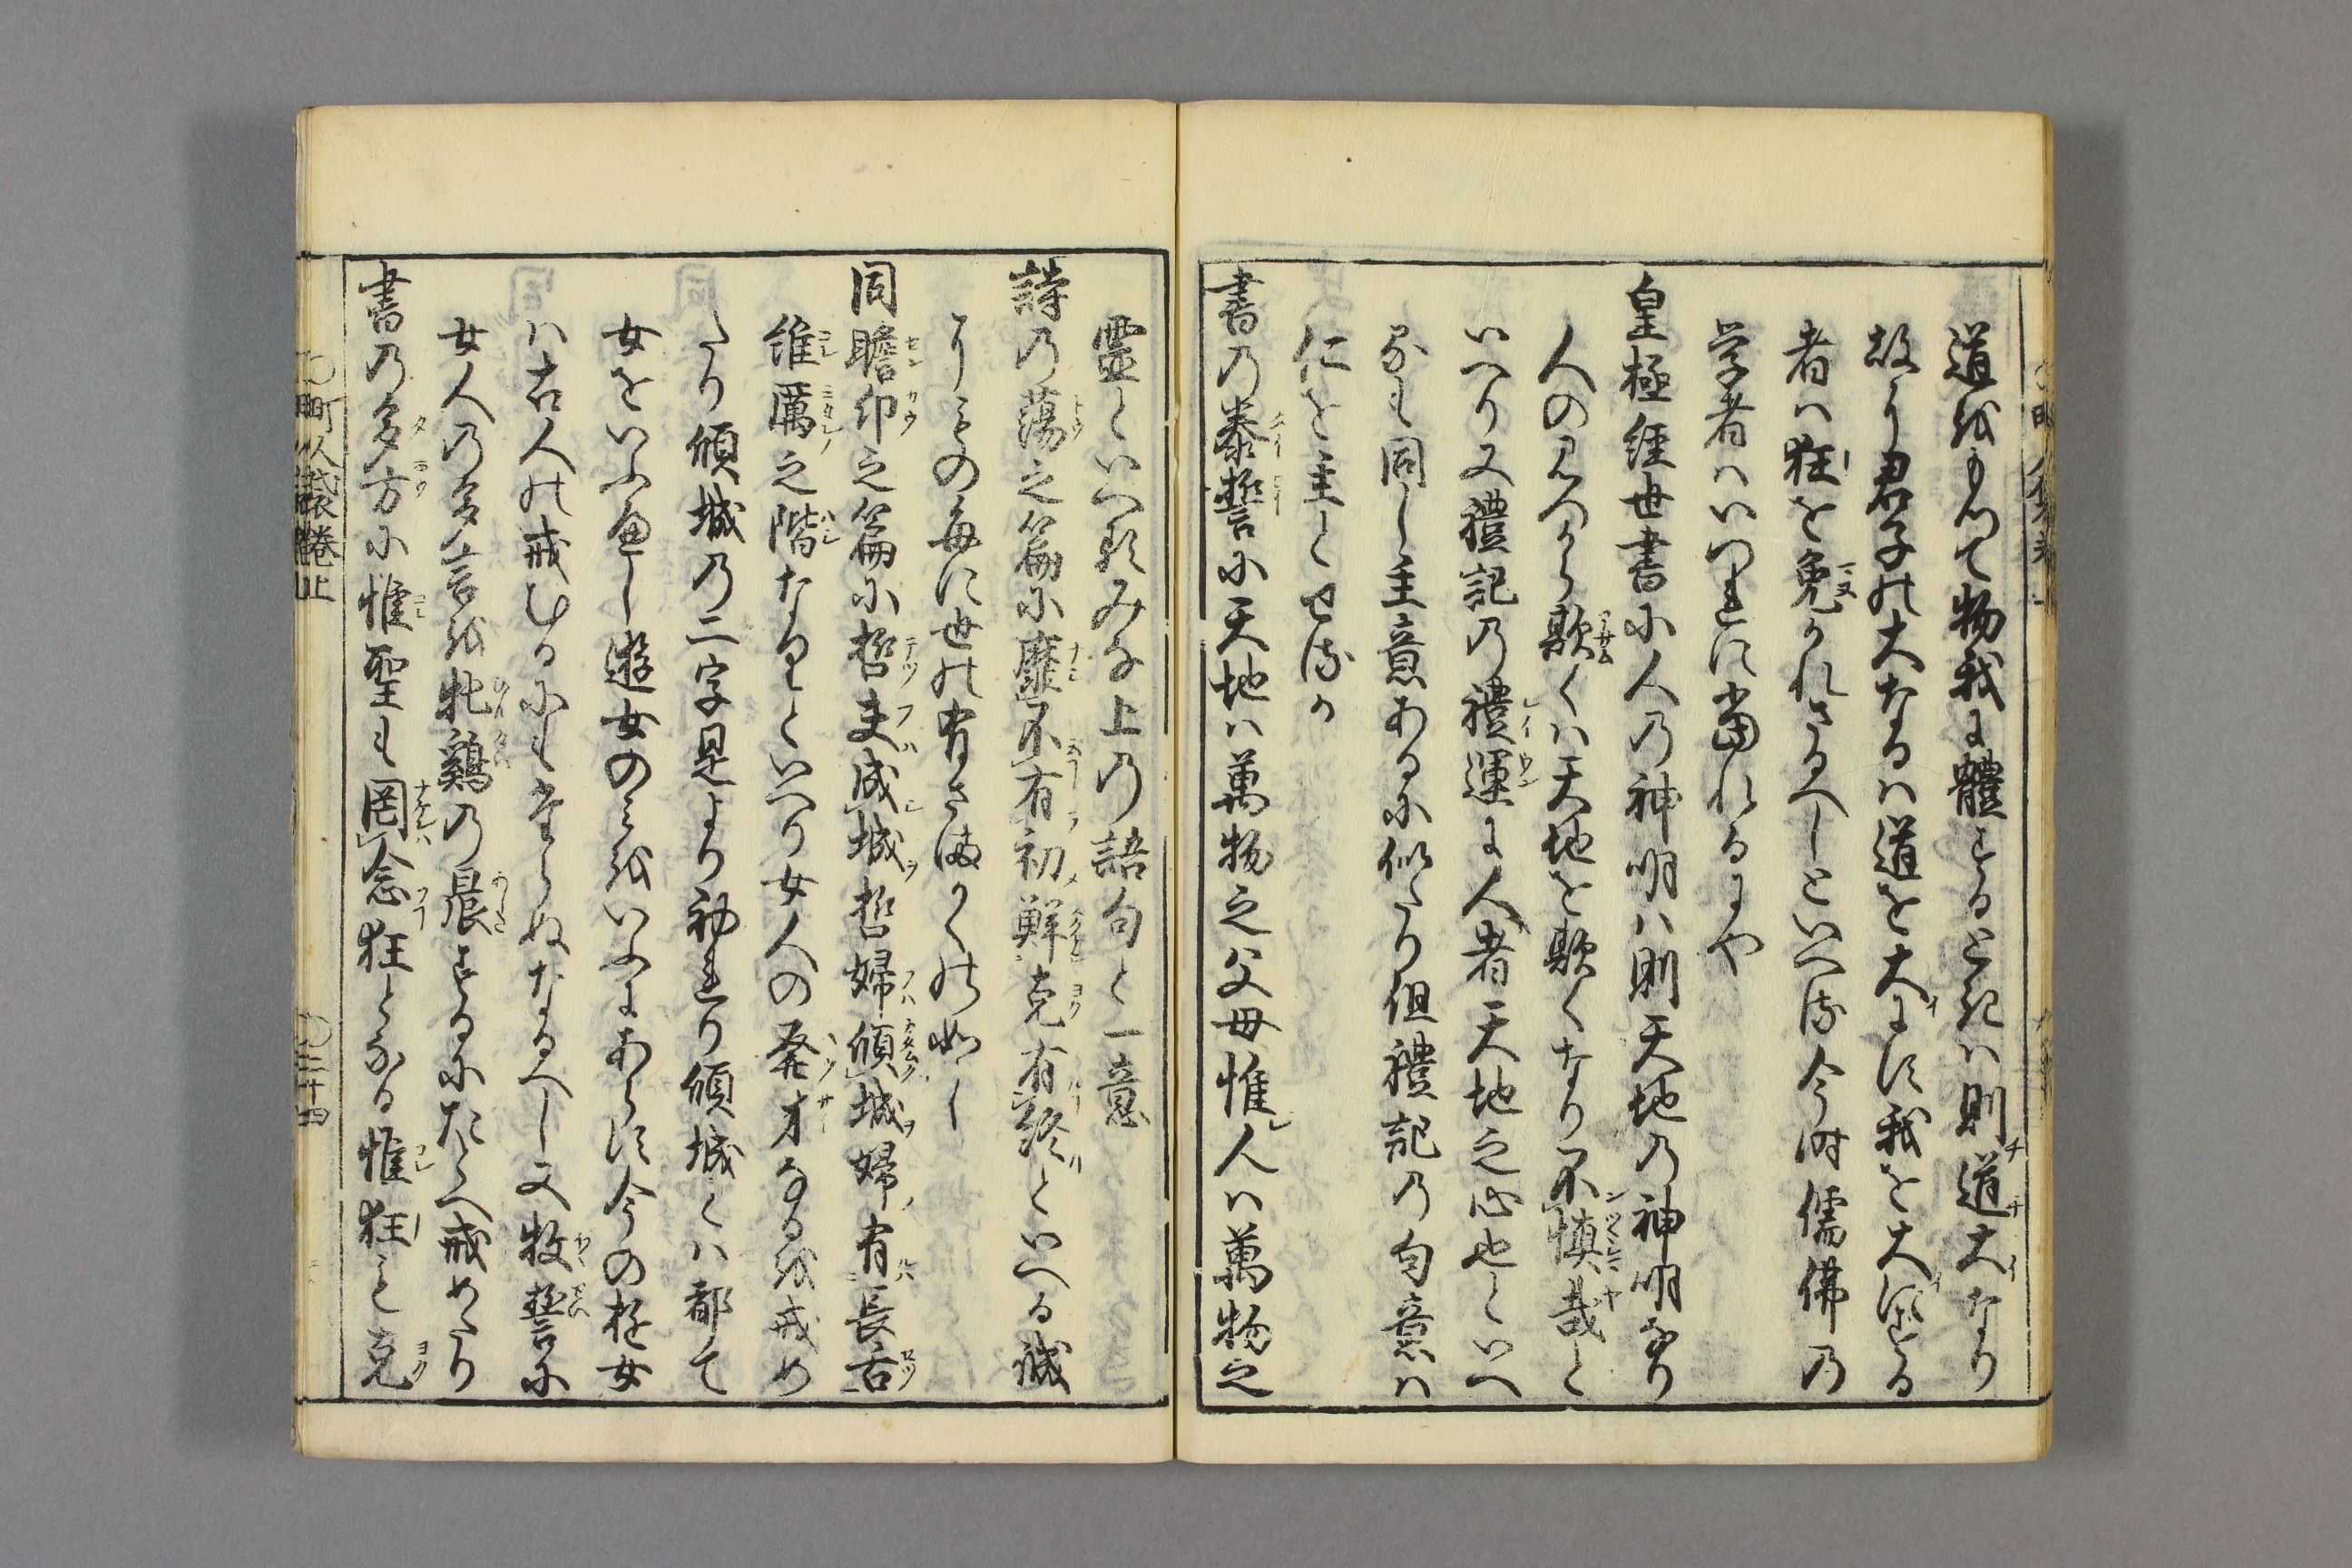 道を以て物我に體するときは則道大なり
故に君子の大なるは道を大にす我を大にする
者は狂を免かれさるへしといへは今時儒佛の
学者はいつれに當れるにや
皇極経世書に人の神明は則天地の神明なり
人の みつから欺くは天地を欺くなり不慎哉と
いへり又禮記の禮運に人者天地之心也といへ
るも同し主意あるに似たり但禮記の句意は
仁を主とせるか
書の泰誓に天地は萬物之父母惟人は萬物之
霊といへるみな上の語句と一意
詩の蕩之篇に靡不有初鮮克有終といへる誠
に の毎に世の有さまかくの如し
同瞻卬之篇に哲夫成城哲婦傾城婦有長舌
維厲之階なりといへり女人の発才なるを戒め
たり傾城の二字是より初れり傾城とは都て
女をいふ也し遊女のみをいふにあらす今の遊女
は古人の戒むるにもたらぬなるへし又牧誓に
女人の多言を牝鷄の晨するにたとへ戒めたり
書の多方に惟聖も罔念狂となる惟狂も克
町人袋巻上
二十四